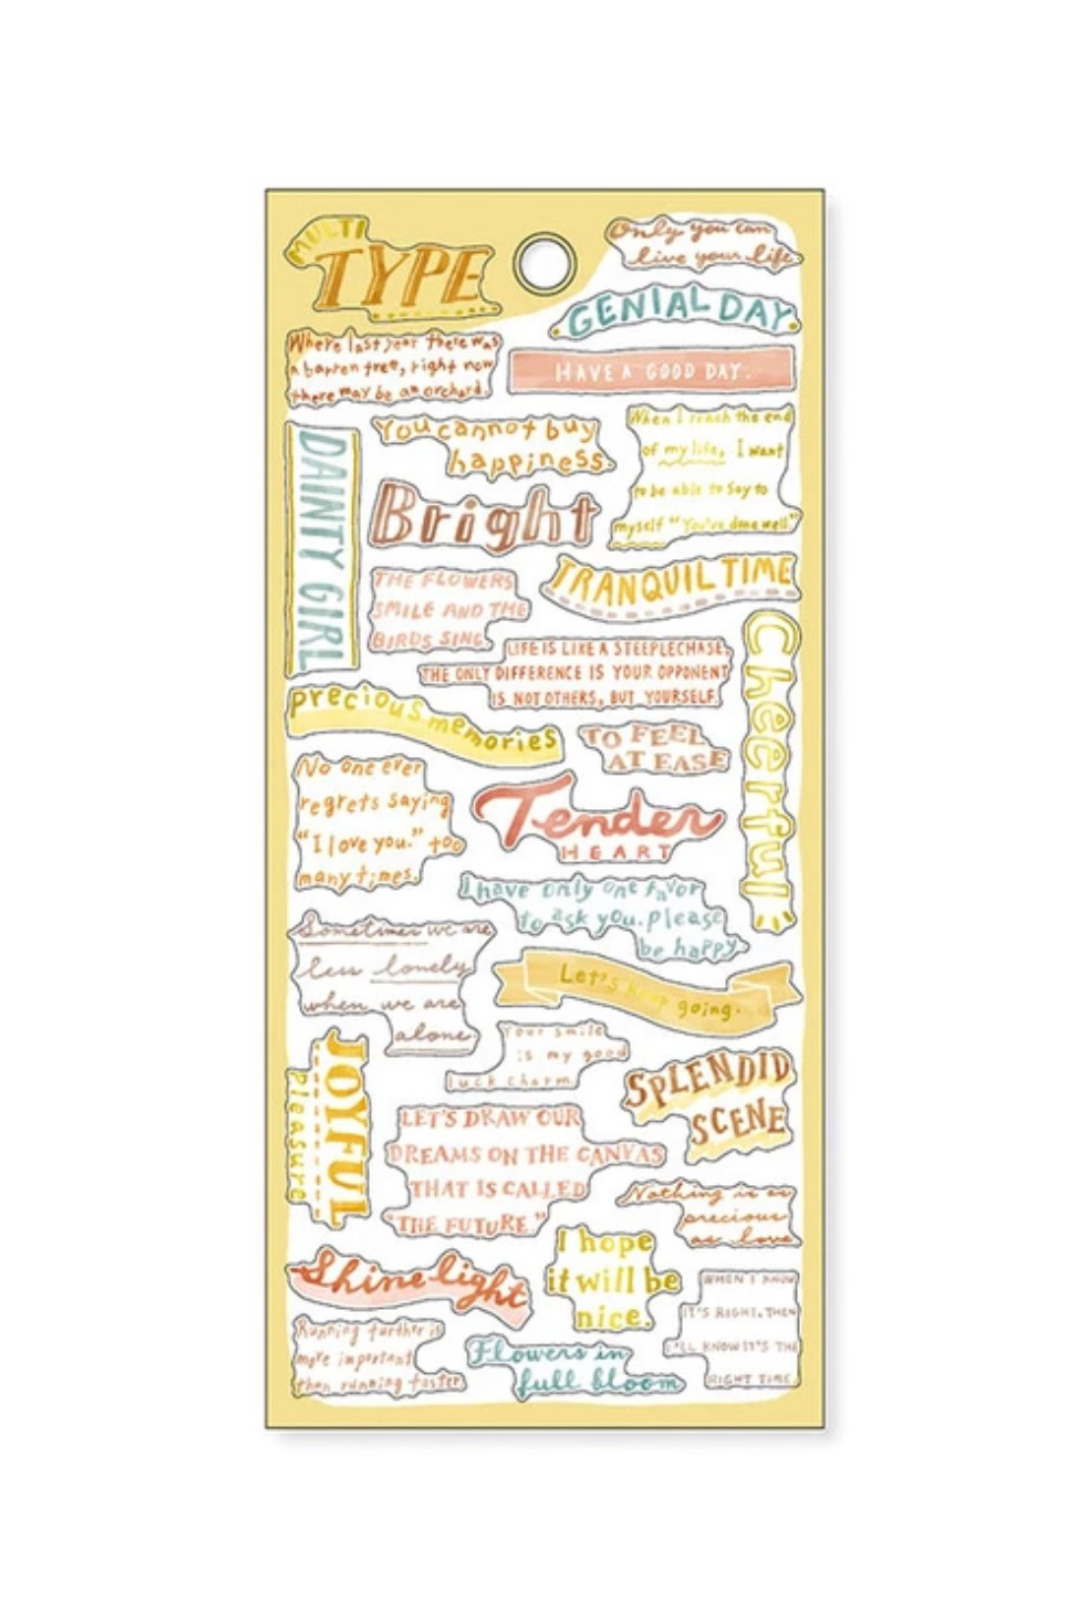 MULTI
TYPE
Only you can
live your life.
GENIAL DAY
HAVE A GOOD DAY.
Where last year there was
a barren tree, right now
there may be an orchard.
You cannot buy
happiness.
When I reach the end
of my life, I want
to be able to say to
myself "You've done well."
DAINTY GIRL
Bright
TRANQUIL TIME
THE FLOWERS
SMILE AND THE
BIRDS SING.
LIFE IS LIKE A STEEPLECHASE,
THE ONLY DIFFERENCE IS YOUR OPPONENT
IS NOT OTHERS, BUT YOURSELF.
Cheerful
precious memories
TO FEEL
AT EASE
No one ever
regrets saying
"I love you." too
many times.
Tender
HEART
I have only one favor
to ask you. please
be happy.
Sometimes we are
less lonely
when we are
alone.
Let's keep going.
Your smile
is my good
luck charm.
JOYFUL
Pleasure
SPLENDID
SCENE
LET'S DRAW OUR
DREAMS ON THE CANVAS
THAT IS CALLED
"THE FUTURE."
Nothing is as
precious
as love.
Shine light
I hope
it will be
nice.
WHEN I KNOW
IT'S RIGHT, THEN
I'LL KNOW IT'S THE
RIGHT TIME.
Running further is
more important
than running faster.
Flowers in
full bloom